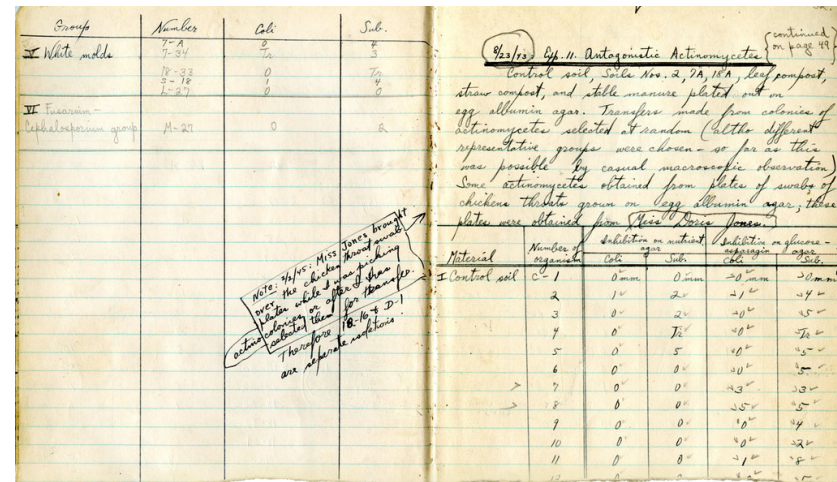 Group Number Coli Sub.
7-A 0 4
V White molds 7-34 Tr 3
18-33 0 Tr
S-18 0 4
L-27 0 0
VI Fusarium-
Cephalosporium group M-27 0 2
Note: 3/2/45: Miss Jones brought
over the chicken throat swab
plates while I was picking
actino colonies or after I has
selected them for transfer.
Therefore 18-16 & D-1
are separate isolations!
8/23/43 Exp. 11. Antagonistic Actinomycetes
{continued
on page 49}
Control soil, Soils Nos. 2, 7A, 18A, leaf compost,
straw compost, and stable manure plated out on
egg albumin agar. Transfers made from colonies of
actinomycetes selected at random (altho different
representative groups were chosen - so far as this
was possible by casual macroscopic observation)
Some actinomycetes obtained from plates of swabs of
chickens throats grown on egg albumin agar; these
plates were obtained from Miss Doris Jones.
Material Number of organism Inhibition on nutrient agar Inhibition on glucose-asparagin agar
Coli Sub. Coli Sub.
I Control soil C-1 0 mm 0 mm 0 mm 0 mm
2 1 2 1 4
3 0 2 0 5
4 0 Tr 0 Tr
5 0 5 0
6 0 0 0 5
7 0 0 3 3
8 0 0 5 5
9 0 0 0 4
10 0 0 0 2
11 0 0 1 8